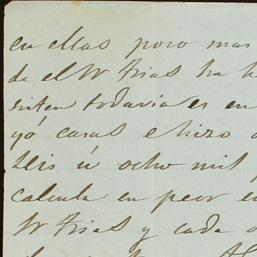 en ellas poco mas
de el Sr Frias ha h
siten todavia es en
yó casas e hizo
seis u ocho mil
calcula en peor e
Sr Frias y cada